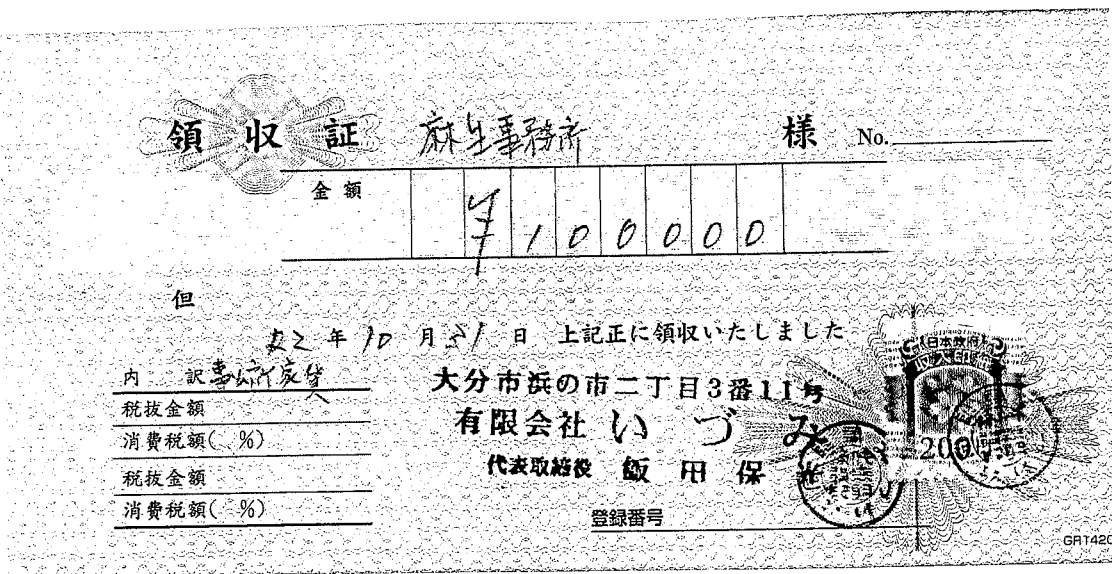 領収証 麻生事務所 様 No.
金額 ¥100000
但
22年10月31日 上記正に領収いたしました
内訳 事務所家賃
税抜金額
消費税額( %)
税抜金額
消費税額( %)
大分市浜の市二丁目3番11号
有限会社 いづみ
代表取締役 飯田保光
登録番号
日本政府
200
GR1420